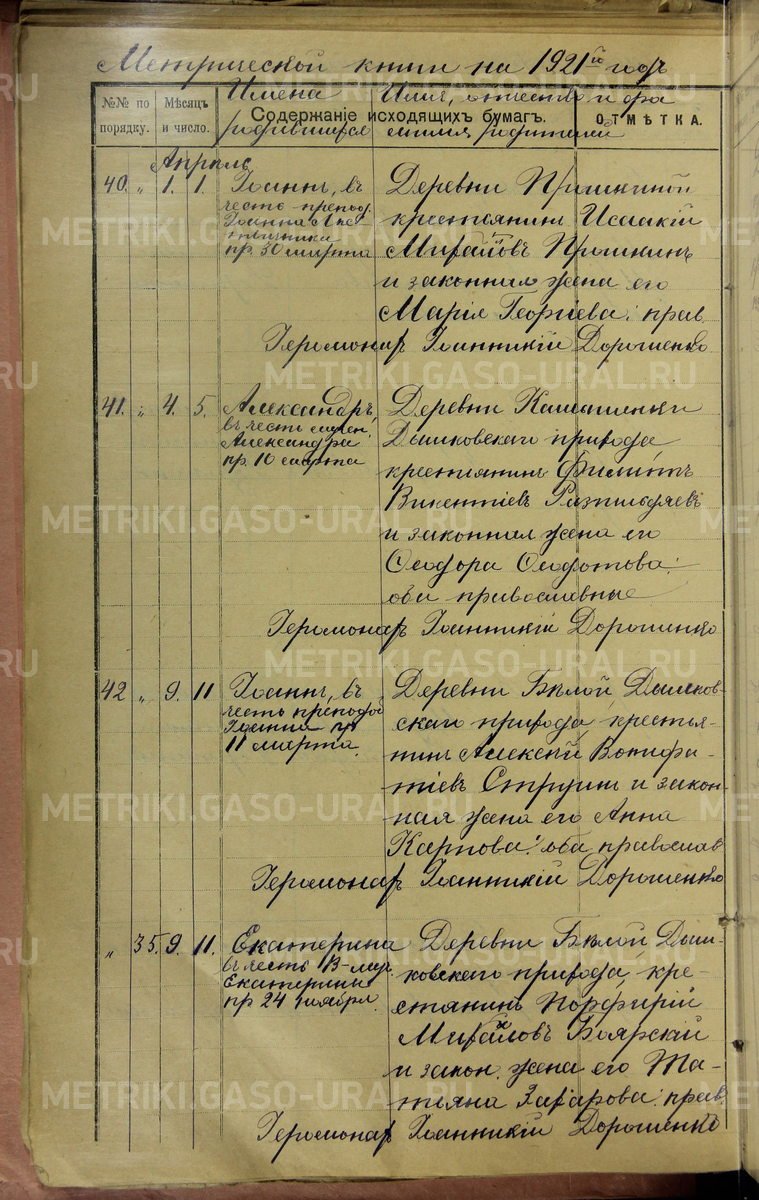 Метрической книги на 1921й годъ
№№ по порядку.
Мѣсяцъ и число.
Имена родившихся
Содержаніе исходящихъ бумагъ.
Имя, отчество и фамилія родителей
ОТМѢТКА.
Апрѣль
40. " 1. 1.
Іоаннъ, въ
честь препод.
Іоанна Лѣствичника
пр. 30 марта
Деревни Прошкиной
крестьянинъ Исаакій
Михайловъ Прошкинъ
и законная жена его
Марія Георгіева: прав.
Іеромонахъ Іоанникій Дорошенко
41. " 4. 5.
Александръ,
въ честь мучен.
Александра
пр. 10 марта
Деревни
Дышковскаго прихода
крестьянинъ Филиппъ
Викентіевъ
и законная жена его
Ѳеодора Ѳеофотова:
оба православные
Іеромонахъ Іоанникій Дорошенко
42 " 9. 11
Іоаннъ, въ
честь преподоб
Іоанна пр
11 марта.
Деревни Бѣлой, Дышков-
скаго прихода, крестья-
нинъ Алексѣй Вонифа-
тіевъ Струшъ и закон-
ная жена его Анна
Карпова: оба православ
Іеромонахъ Іоанникій Дорошенко
" 35. 9. 11.
Екатерина
въ честь В-муч.
Екатерины
пр 24 ноября.
Деревни Бѣлой Дыш-
ковскаго прихода, кре-
стянинъ Порфирій
Михайловъ Боярскій
и закон. жена его Та-
тіяна Захарова: прав
Іеромонахъ Іоанникій Дорошенко
METRIKI.GASO-URAL.RU